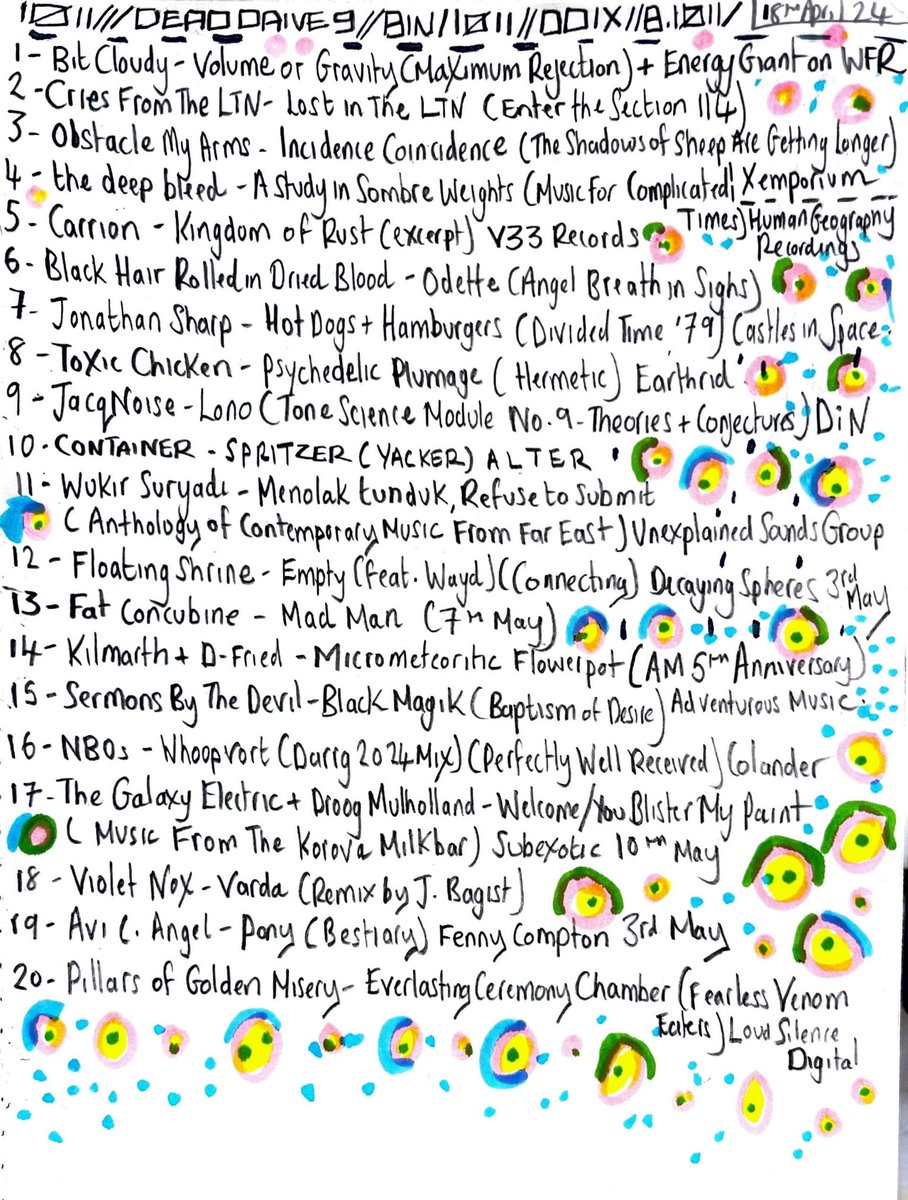 1011////DEAD DRIVE 9//BIN/1011//DDIX//8.1011/ 18TH April 24
1 - Bit Cloudy - Volume or Gravity (Maximum Rejection) + Energy Giant on WFR
2 - Cries From The LTN - Lost in The LTN (Enter the Section 114)
3 - Obstacle My Arms - Incidence Coincidence (The Shadows of Sheep Are Getting Longer)
4 - the deep bleed - A Study in Sombre Weights (Music for Complicated Xemporium
Times) Human Geography
Recordings
5 - Carrion - Kingdom of Rust (excerpt) V33 Records
6 - Black Hair Rolled in Dried Blood - Odette (Angel Breath in Sighs)
7 - Jonathan Sharp - Hot Dogs + Hamburgers (Divided Time '79) Castles in Space
8 - Toxic Chicken - Psychedelic Plumage (Hermetic) Earthrid
9 - JacqNoise - Lono (Tone Science Module No. 9 - Theories + Conjectures) DiN
10 - CONTAINER - SPRITZER (YACKER) ALTER
11 - Wukir Suryadi - Menolak tunduk, Refuse to Submit
(Anthology of Contemporary Music From Far East) Unexplained Sounds Group
12 - Floating Shrine - Empty (feat. Wayd) (Connecting) Decaying Spheres 3rd May
13 - Fat Concubine - Mad Man (7TH May)
14 - Kilmarth + D-Fried - Micrometeoritic Flowerpot (AM 5TH Anniversary)
15 - Sermons By The Devil - Black Magik (Baptism of Desire) Adventurous Music
16 - NBOs - Whoopvort (Darrg 2024 Mix) (Perfectly Well Received) Colander
17 - The Galaxy Electric + Droog Mulholland - Welcome/You Blister My Paint
(Music From The Korova Milkbar) Subexotic 10TH May
18 - Violet Nox - Varda (Remix by J. Bagist)
19 - Avi C. Angel - Pony (Bestiary) Fenny Compton 3rd May
20 - Pillars of Golden Misery - Everlasting Ceremony Chamber (Fearless Venom
Eaters) Loud Silence
Digital